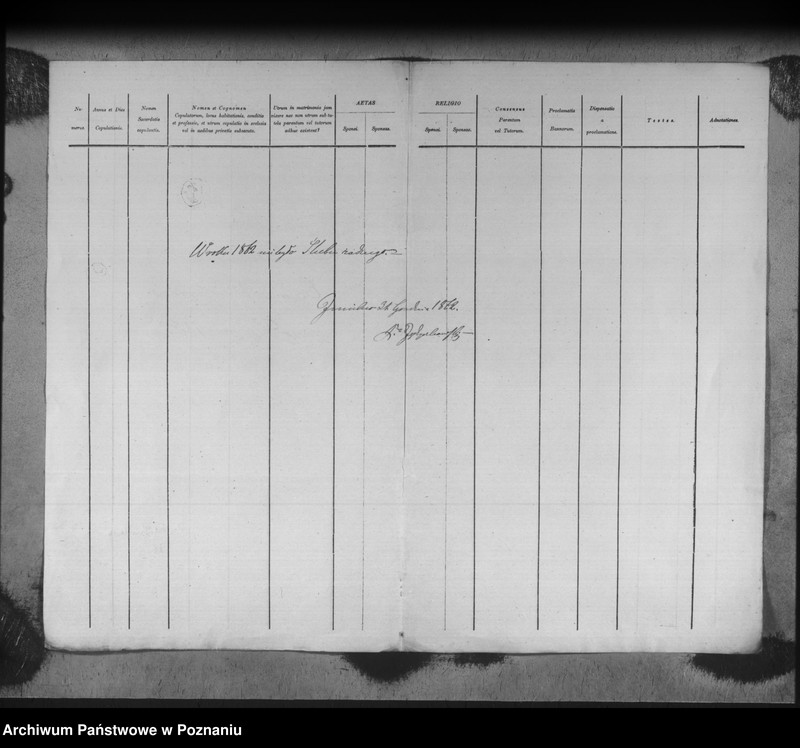 Nu-
merus.
Annus et Dies
Copulationis.
Nomen
Sacerdotis
copulantis.
Nomen et Cognomen
Copulatorum, locus habitationis, conditio
et professio, et utrum copulatio in ecclesia
vel in aedibus privatis subsecuta.
Utrum in matrimonio jam
vixere nec non utrum sub tu-
tela parentum vel tutorum
adhuc existant?
AETAS
Sponsi.
Sponsae.
RELIGIO
Sponsi.
Sponsae.
Consensus
Parentum
vel Tutorum.
Proclamatio
Bannorum.
Dispensatio
a
proclamatione.
Testes.
Adnotationes.
W roku 1862 nie było Ślubu żadnego.
1862.
Archiwum Państwowe w Poznaniu